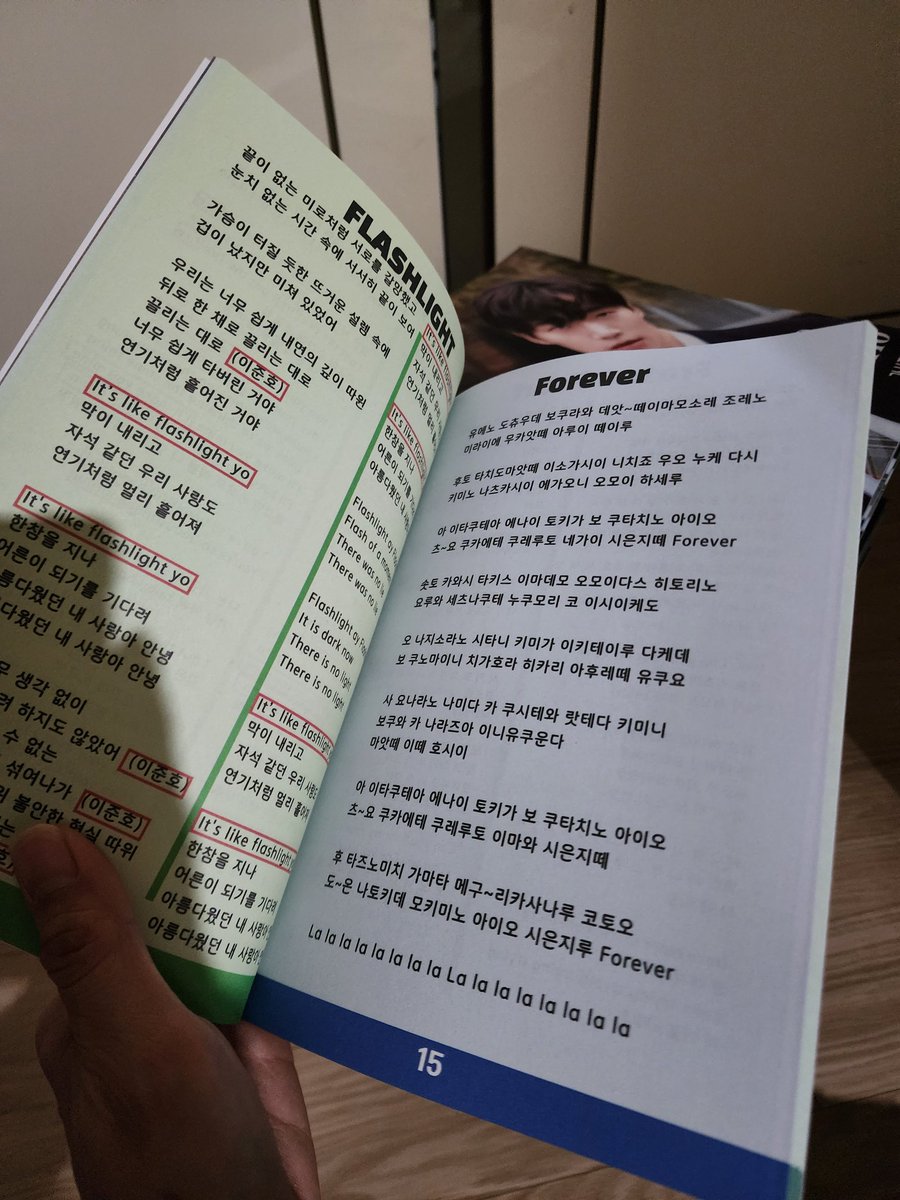 FLASHLIGHT
끝이 없는 미로처럼 서로를 갈망했고
눈치 없는 시간 속에 서서히 끝이 보여
가슴이 터질 듯한 뜨거운 설렘 속에
겁이 났지만 미쳐 있었어
우리는 너무 쉽게 내면의 깊이 따윈
뒤로 한 채로 끌리는 대로
끌리는 대로 (이준호)
너무 쉽게 타버린 거야
연기처럼 흩어진 거야
It's like flashlight yo
막이 내리고
자석 같던 우리 사랑도
연기처럼 멀리 흩어져
It's like flashlight yo
한참을 지나
어른이 되기를 기다려
아름다웠던 내 사랑아 안녕
다웠던 내 사랑아 안녕
생각 없이
려 하지도 않았어 (이준호)
수 없는
섞여나가 (이준호)
불안한 현실 따위
It's like
막이 내리고
자석 같던
연기처럼
It's like
한참을 지나
어른이 되기를
아름다웠던
Flashlight oy
Flash of a
There was no
There was no
Flashlight oy
It is dark now
There is no light
There is no light
It's like flashlight
막이 내리고
자석 같던 우리 사랑도
연기처럼 멀리 흩어져
It's like flashlight
한참을 지나
어른이 되기를 기다려
아름다웠던 내 사랑아
아름다웠던 내 사랑아
Forever
유메노 도츄우데 보쿠라와 데앗~떼이마모소레 조레노
미라이에 무카앗떼 아루이 떼이루
후토 타치도마앗떼 이소가시이 니치죠 우오 누케 다시
키미노 나츠카시이 에가오니 오모이 하세루
아 이타쿠테아 에나이 토키가 보 쿠타치노 아이오
츠~요 쿠카에테 쿠레루토 네가이 시은지떼 Forever
솟토 카와시 타키스 이마데모 오모이다스 히토리노
요루와 세츠나쿠테 누쿠모리 코 이시이케도
오 나지소라노 시타니 키미가 이키테이루 다케데
보 쿠노마이니 치가호라 히카리 아후레떼 유쿠요
사 요나라노 나미다 카 쿠시테와 랏테다 키미니
보쿠와 카 나라즈아 이니유쿠운다
마앗떼 이떼 호시이
아 이타쿠테아 에나이 토키가 보 쿠타치노 아이오
츠~요 쿠카에테 쿠레루토 이마와 시은지떼
후 타즈노미치 가마타 메구~리카사나루 코토오
도~은 나토키데 모키미노 아이오 시은지루 Forever
La la la la la la la la La la la la la la la la
15